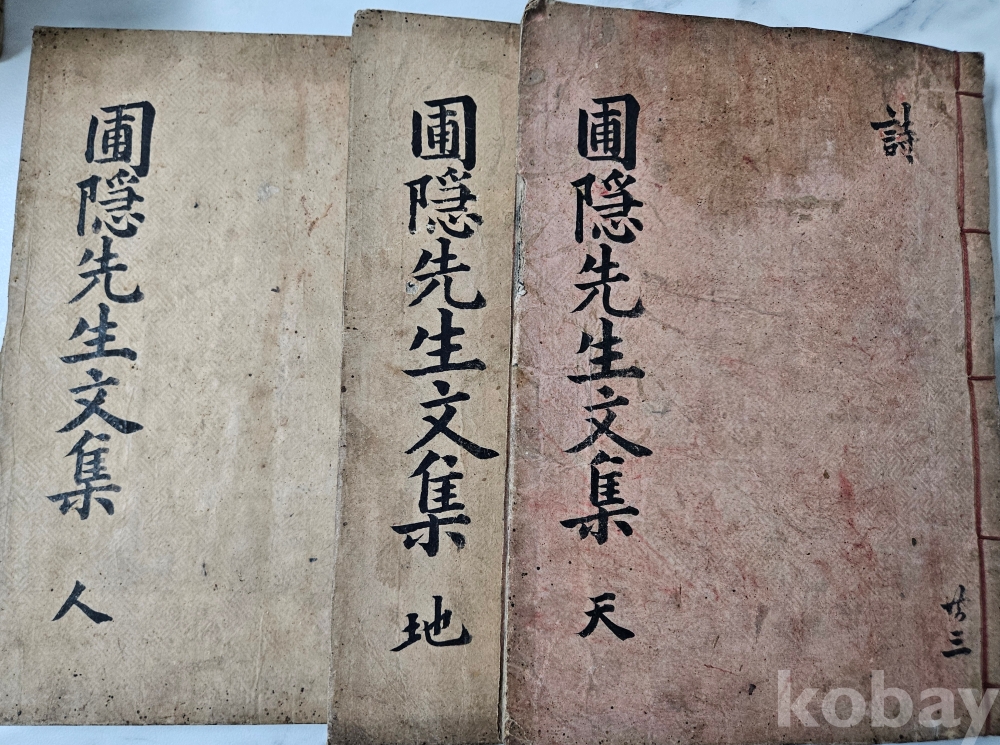 詩
圃隠先生文集 天
共三
圃隠先生文集 地
圃隠先生文集 人
kobay